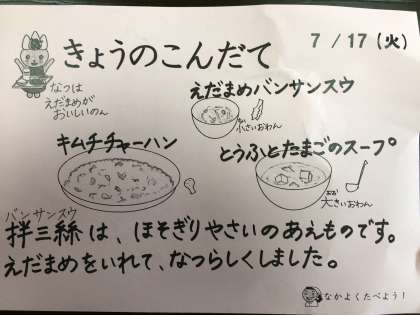 きょうのこんだて
7/17(火)
なつは
えだまめが
おいしいのん
えだまめバンサンスウ
小さいおわん
キムチチャーハン
とうふとたまごのスープ
大さいおわん
バンサンスウ
拌三絲は、ほそぎりやさいのあえものです。
えだまめをいれて、なつらしくしました。
なかよくたべよう!